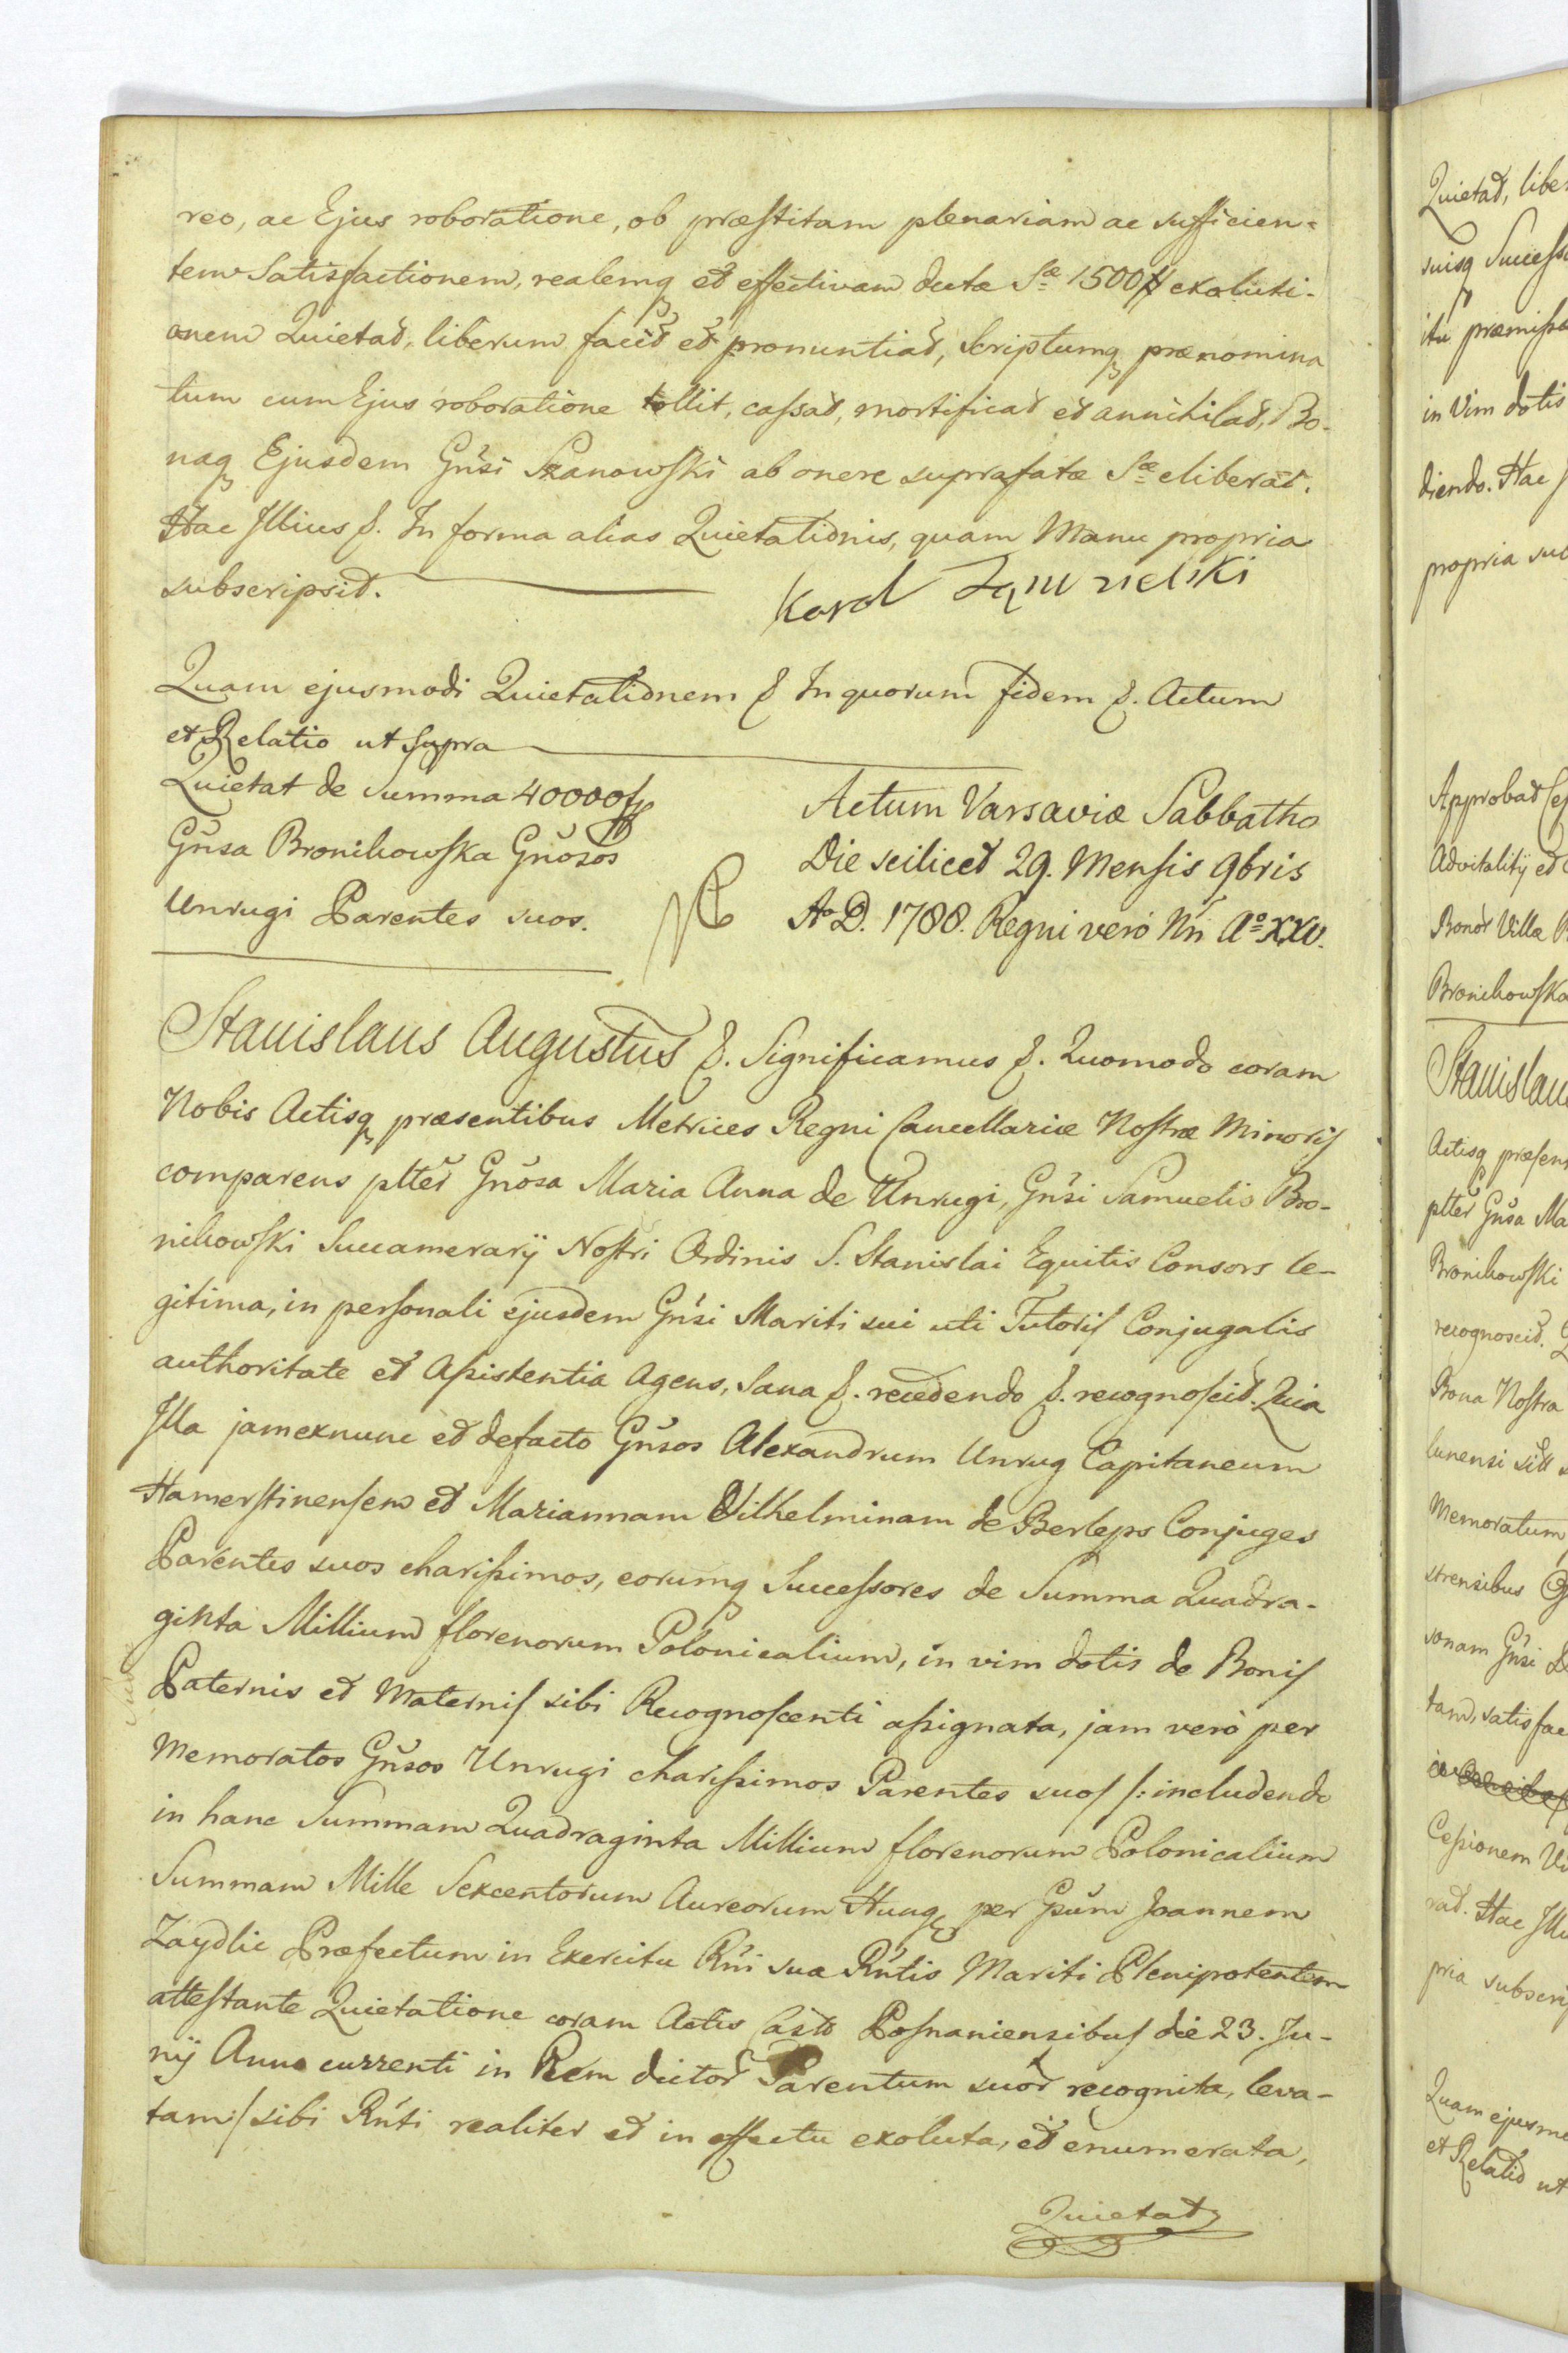 reo, ac Ejus roboratione, ob præstitam plenariam ac sufficien=
tem Satisfactionem, realemq et effectivam dictæ Sæ 1500 # exoluti-
onem Quietat, liberum facit et pronuntiat, Scriptumq prænomina
tum cum Ejus roboratione tollit, cassat, mortificat et annihilat, Bo-
naq Ejusdem Gnsi Skanowski ab onere suprafatæ Sæ eliberat.
Hac Illius &. In forma alias Quietationis, quam Manu propria
subscripsit.
Karol
Quam ejusmodi Quietationem & In quorum fidem &. Actum
et Relatio ut supra
Quietat de Summa 40000 f
Gnsa Bronikowska Gnosos
Unrugi Parentes suos.
Actum Varsaviæ Sabbatho
Die scilicet 29. Mensis 9bris
Ao D. 1788. Regni veró Nri Ao XXV.
Stanislaus Augustus &. Significamus &. Quomodo coram
Nobis Actisq præsentibus Metrices Regni Cancellariæ Nostræ Minoris
comparens pltter Gnosa Maria Anna de Unrugi, Gnsi Samuelis Bro-
nikowski Succamerarij Nostri Ordinis S. Stanislai Equitis Consors le-
gitima, in personali ejusdem Gnsi Mariti sui uti Tutoris Conjugalis
authoritate et Assistentia Agens, Sana &. recedendo &. recognoscit. Quia
Illa jam exnunc et defacto Gnsos Alexandrum Unrug Capitaneum
Hamerstinensem et Mariannam Vilhelminam de Berleps Conjuges
Parentes suos charissimos, eorumq Successores de Summa Quadra-
ginta Millium florenorum Polonicalium, in vim dotis de Bonis
Paternis et Maternis sibi Recognoscenti assignata, jam veró per
Memoratos Gnsos Unrugi charissimos Parentes suos /: includendo
in hanc Summam Quadraginta Millium florenorum Polonicalium
Summam Mille Sexcentorum Aureorum Hung per Gnum Joannem
Zaydlic Præfectum in Exercitu Rni suæ Rntis Mariti Plenipotentem
attestante Quietatione coram Actis Castr Posnaniensibus die 23. Ju-
nij Anno currenti in Rem dictor Parentum suor recognita, leva-
tam :/ sibi Rnti realiter et in effectu exoluta, et enumerata,
Quietat
Quietat, liber
suisq Successo
itu præmissa
in Vim dotis
diendo. Hac
propria sub
Approbat
Advitality et
Bonor Villæ
Bronikowska
Stanislau
Actisq præsen
pltter Gnsa Ma
Bronikowski
recognoscit.
Bona Nostra
Memoratum
sonam Gnsi
tam, satisfac
Cessionem
rat. Hac Illi
pria subscri
Quam ejusmo
et Relatio ut